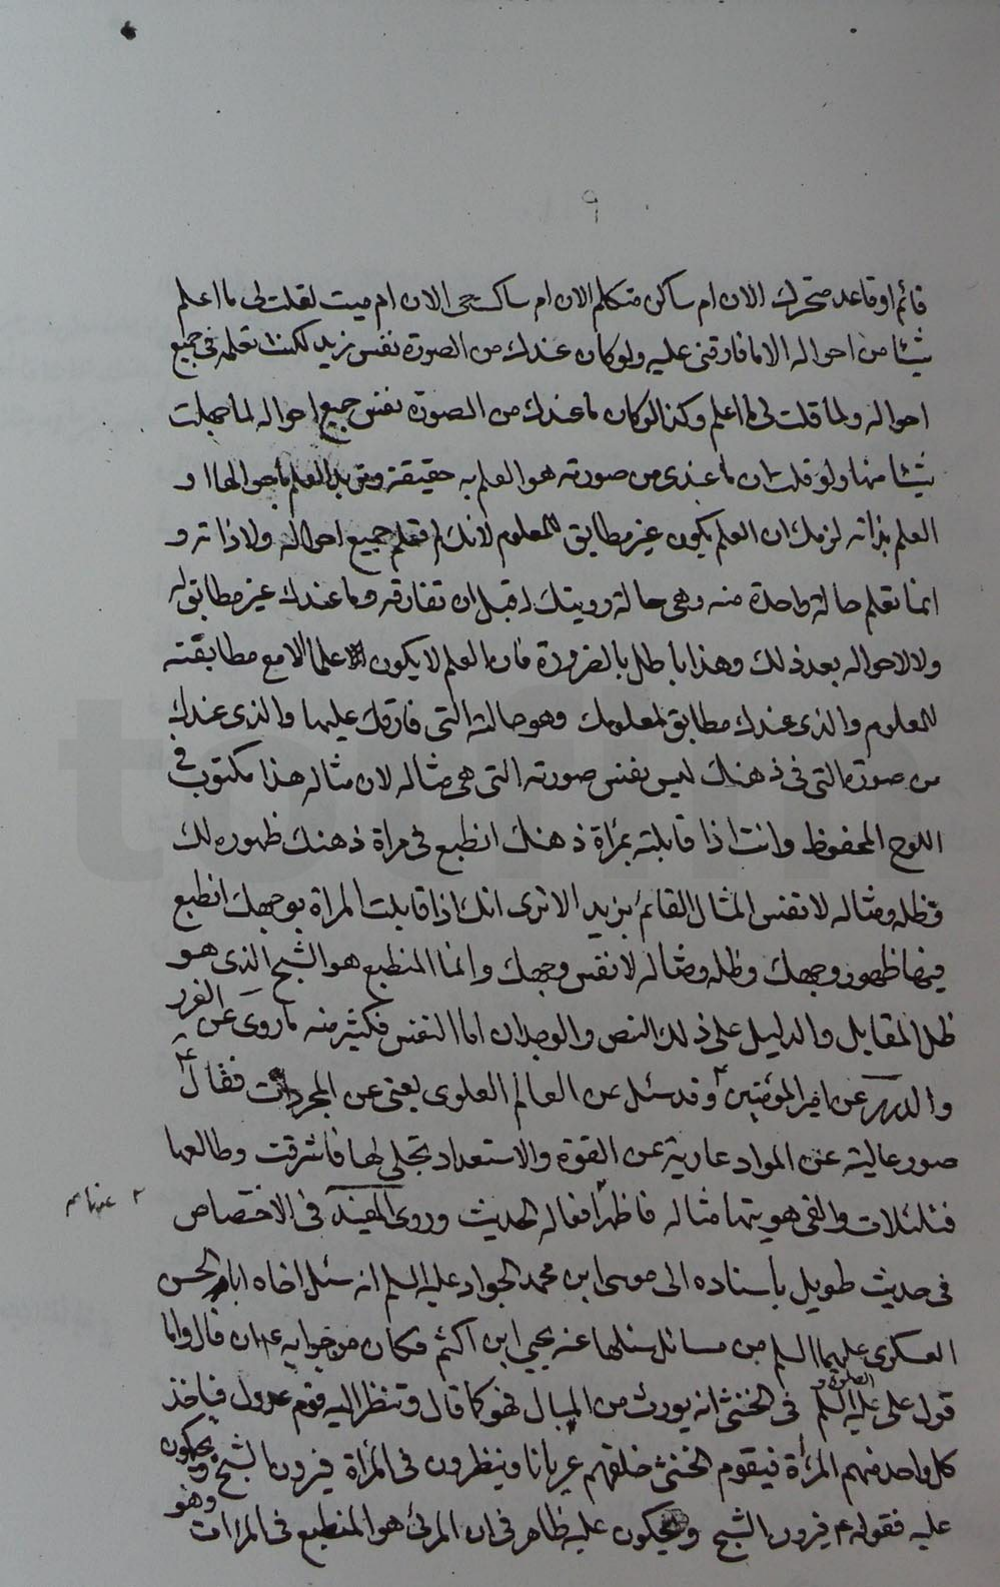 ٩
قائم او قاعد متحرك الان ام ساكن متكلم الان ام ساكت حى الان ام ميت لقلت لى ما اعلم
شيئا من احواله الا ما فارقنى عليه ولو كان عندك من الصورة نفس زيد لكنت تعلمه فى جميع
احواله ولما قلت لى ما اعلم وكذا لو كان ما عندك من الصورة نفس جميع احواله لما جهلت
شيئا منها ولو قلت ان ما عندى من صورته هو العلم به حقيقة العلم باحواله او
العلم بذاته لزمك ان العلم يكون غير مطابق للمعلوم لانك لم تعلم جميع احواله ولا ذاته و
انما تعلم حالة واحدة منه وهى حالة رويتك له قبل ان تفارقه وما عندك غير مطابق له
ولا لاحواله بعد ذلك وهذا باطل بالضرورة فان العلم لا يكون علما الا مع مطابقته
للمعلوم والذى عندك مطابق لمعلومك وهو حالته التى فارقك عليها والذى عندك
من صورته التى فى ذهنك ليس نفس صورته التى هى مثاله لان مثاله هذا مكتوب فى
اللوح المحفوظ وانت اذا قابلته بمرآة ذهنك انطبع فى مرآة ذهنك ظهوره لك
وظله ومثاله لا نفس المثال القائم بزيد الا ترى انك اذا قابلت المراة بوجهك انطبع
فيها ظهور وجهك وظله ومثاله لا نفس وجهك وانما المنطبع هو الشبح الذى هو
ظل المقابل والدليل على ذلك النص والوجدان اما النص فكثير منه ما روى عن الغرر
والدرر عن امير المؤمنين ع وقد سئل عن العالم العلوى يعنى عن المجردات فقال ع
صور عالية عن المواد عارية عن القوة والاستعداد تجلى لها فاشرقت وطالعها
فتلئلات والقى هويتها مثاله فاظهر افعاله الحديث وروى المفيد فى الاختصاص
عنها
فى حديث طويل باسناده الى موسى ابن محمد الجواد عليه السلم انه سئل اخاه ابا الحسن
العسكرى عليهما السلم من مسائل سئلها عنه يحيى ابن اكثم فكان من جوابه ع ان قال واما
قول على عليه الصلوة و السلم فى الخنثى انه يورث من المبال فهو كما قال وتنظر اليه قوم عدول فياخذ
كل واحد منهم المرأة فيقوم الخنثى خلفهم عريانا وينظرون فى المرآة فيرون الشبح ويحكمون
عليه فقوله ع فيرون الشبح ويحكمون عليه ظاهر فى ان المرئى هو المنطبع فى المرات وهو